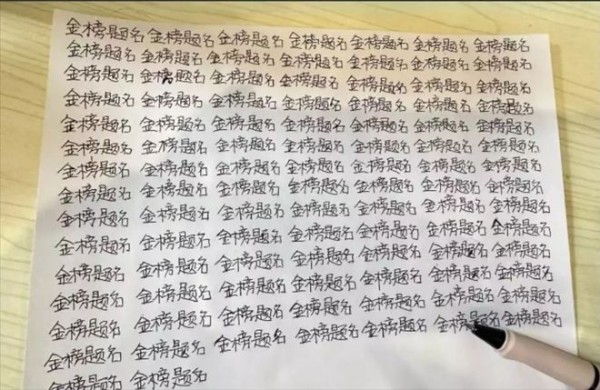 金榜题名 金榜题名 金榜题名 金榜题名 金榜题名 金榜题名 金榜题名
金榜题名 金榜题名 金榜题名 金榜题名 金榜题名 金榜题名 金榜题名
金榜题名 金榜题名 金榜题名 金榜题名 金榜题名 金榜题名 金榜题名
金榜题名 金榜题名 金榜题名 金榜题名 金榜题名 金榜题名 金榜题名
金榜题名 金榜题名 金榜题名 金榜题名 金榜题名 金榜题名 金榜题名
金榜题名 金榜题名 金榜题名 金榜题名 金榜题名 金榜题名 金榜题名
金榜题名 金榜题名 金榜题名 金榜题名 金榜题名 金榜题名 金榜题名
金榜题名 金榜题名 金榜题名 金榜题名 金榜题名 金榜题名 金榜题名
金榜题名 金榜题名 金榜题名 金榜题名 金榜题名 金榜题名 金榜题名
金榜题名 金榜题名 金榜题名 金榜题名 金榜题名 金榜题名 金榜题名
金榜题名 金榜题名 金榜题名 金榜题名 金榜题名 金榜题名 金榜题名
金榜题名 金榜题名 金榜题名 金榜题名 金榜题名 金榜题名 金榜题名
金榜题名 金榜题名 金榜题名 金榜题名 金榜题名 金榜题名 金榜题名
金榜题名 金榜题名 金榜题名 金榜题名 金榜题名 金榜题名 金榜题名
金榜题名 金榜题名